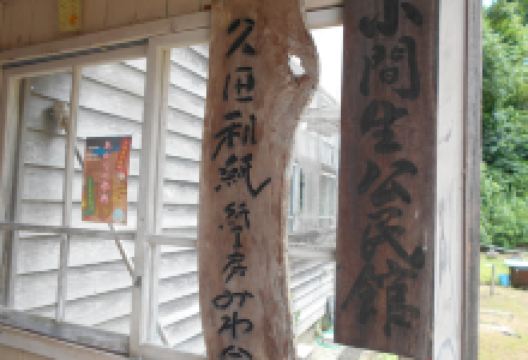 小間生公民館
久田和紙 紙工房みわ